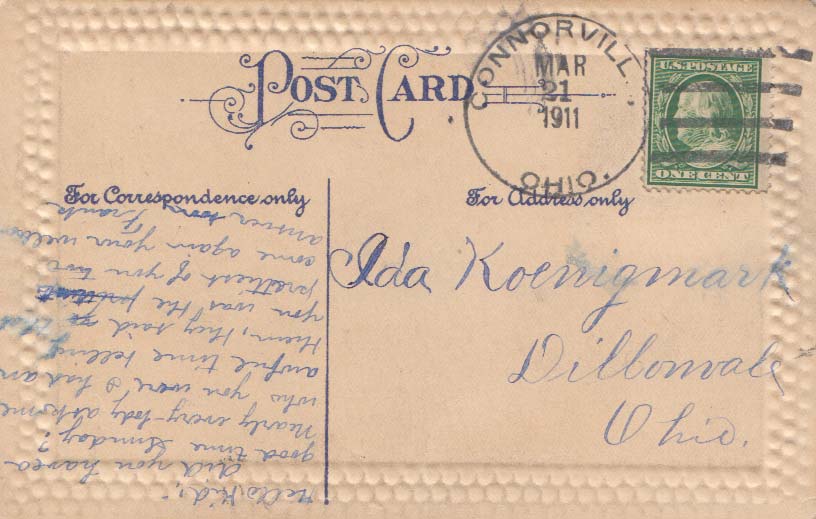 POST CARD
CONNORVILL
MAR
21
1911
OHIO.
U.S. POSTAGE
ONE CENT
For Correspondence only
For Address only
Ida Koenigmark
Dillonvale
Ohio.
Hello Kid;
did you have a
good time Sunday?
Nearly every-body ask me
who you were, I had an
awful time telling
them, they said
you was the
prettiest of you two
come again your welcom
answer soon Frank